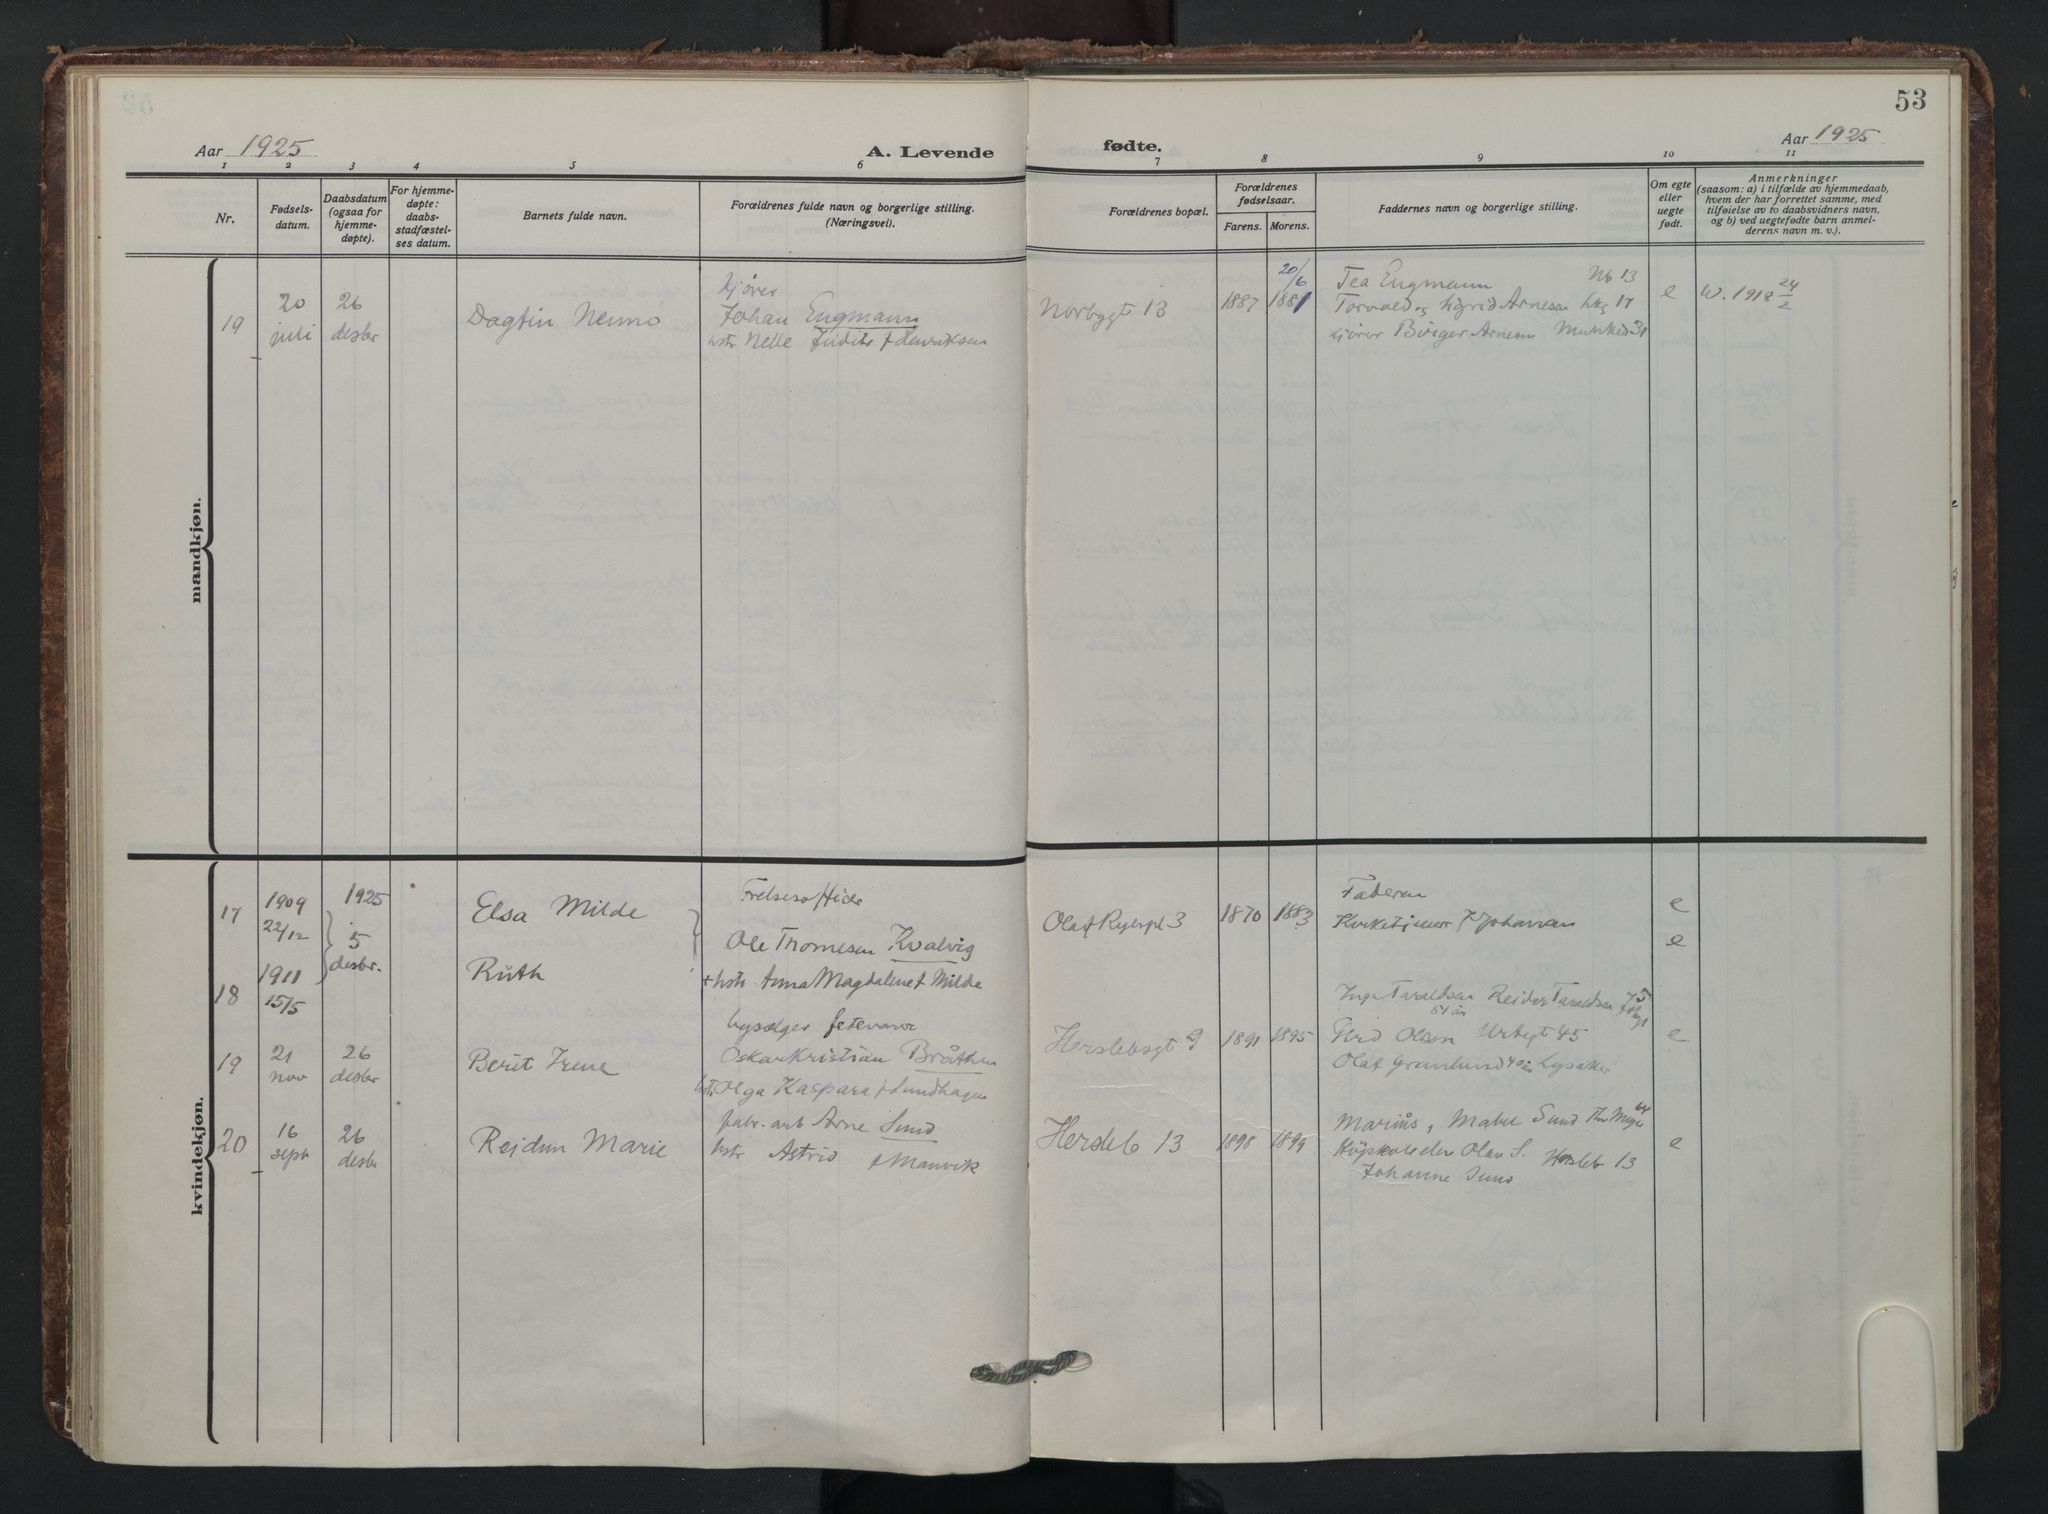 53
Aar 1925
A. Levende
fødte.
Aar 1925
1 2 3 4 5 6 7 8 9 10 11
Nr.
Fødsels-
datum.
Daabsdatum
(ogsaa for
hjemme-
døpte).
For hjemme-
døpte:
daabs-
stadfæstel-
ses datum.
Barnets fulde navn.
Forældrenes fulde navn og borgerlige stilling.
(Næringsvei).
Forældrenes bopæl.
Forældrenes
fødselsaar.
Farens. Morens.
Faddernes navn og borgerlige stilling.
Om egte
eller
uegte
født.
Anmerkninger
(saasom: a) i tilfælde av hjemmedaab,
hvem der har forrettet samme, med
tilføielse av to daabsvidners navn,
og b) ved uegtefødte barn anmel-
derens navn m. v.).
mandkjøn.
19
20
juli
26
desbr
Dagfin Nenno
kjører
Johan Engmann
hstr Nelle Judith f Henriksen
Norbygt 13
1887
20/6
1881
Tea Engmann Nb 13
Torvald og Sigrid Arnesen 17
kjører Birger Arnesen Munked 31
e
W. 1918 24/2
kvindekjøn.
17
1909
22/12
1925
5
desbr.
Elsa Milde
Frelseso
Ole Thomesen Kvalvig
+ hstr Anna Magdalene f Milde
Olaf Ryespl 3
1870
1883
Faderen
Kirketjener J Johansen
e
18
1911
15/5
Ruth
e
19
21
nov
26
desbr
Berit Irene
Oskar Kristian Bråthen
hstr Olga Kaspara f Sundhagen
Herslebsgt 9
1891
1895
Inga Taraldsen Reidar Taraldsen
Gerd Olsen Urtegt 45
Olaf Grønlund 40 år Lysaker
e
20
16
septr
26
desbr
Reidun Marie
fabr. arb Arne Sund
hstr Astrid f Manvik
Hersleb 13
1898
1899
Marius, Mabel Sund Th Meyer 64
Olav S. Hersleb 13
Johanne Sund
e